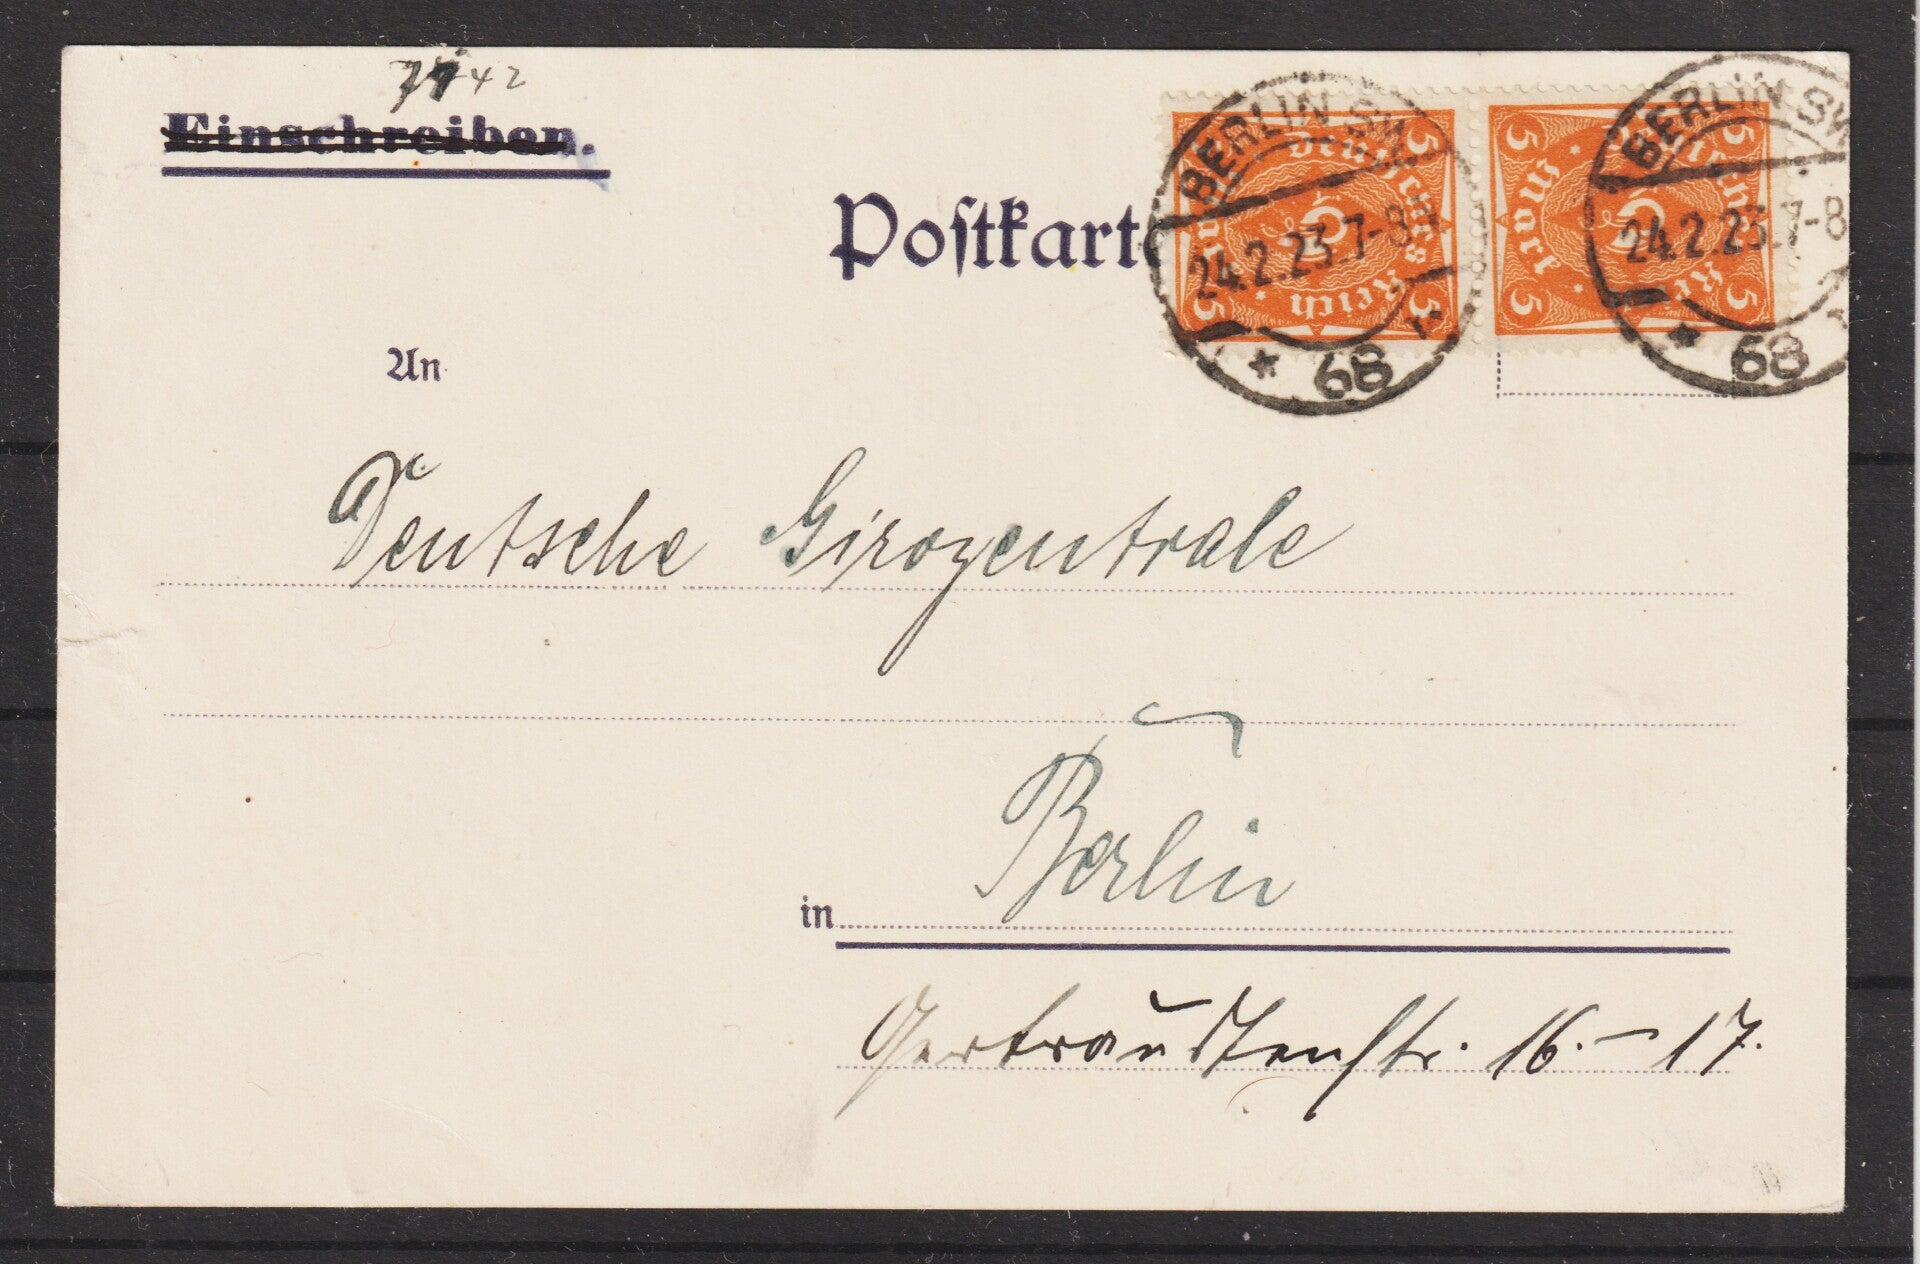 7142
Einschreiben.
Postkart
BERLIN SW
24.2.23.7-8
* 68
BERLIN SW
24.2.23.7-8
* 68
5 5 Deutsches Reich 5 5
5 5 5 5
An
Deutsche Girozentrale
Berlin
in
Gertraudtenstr. 16.-17.